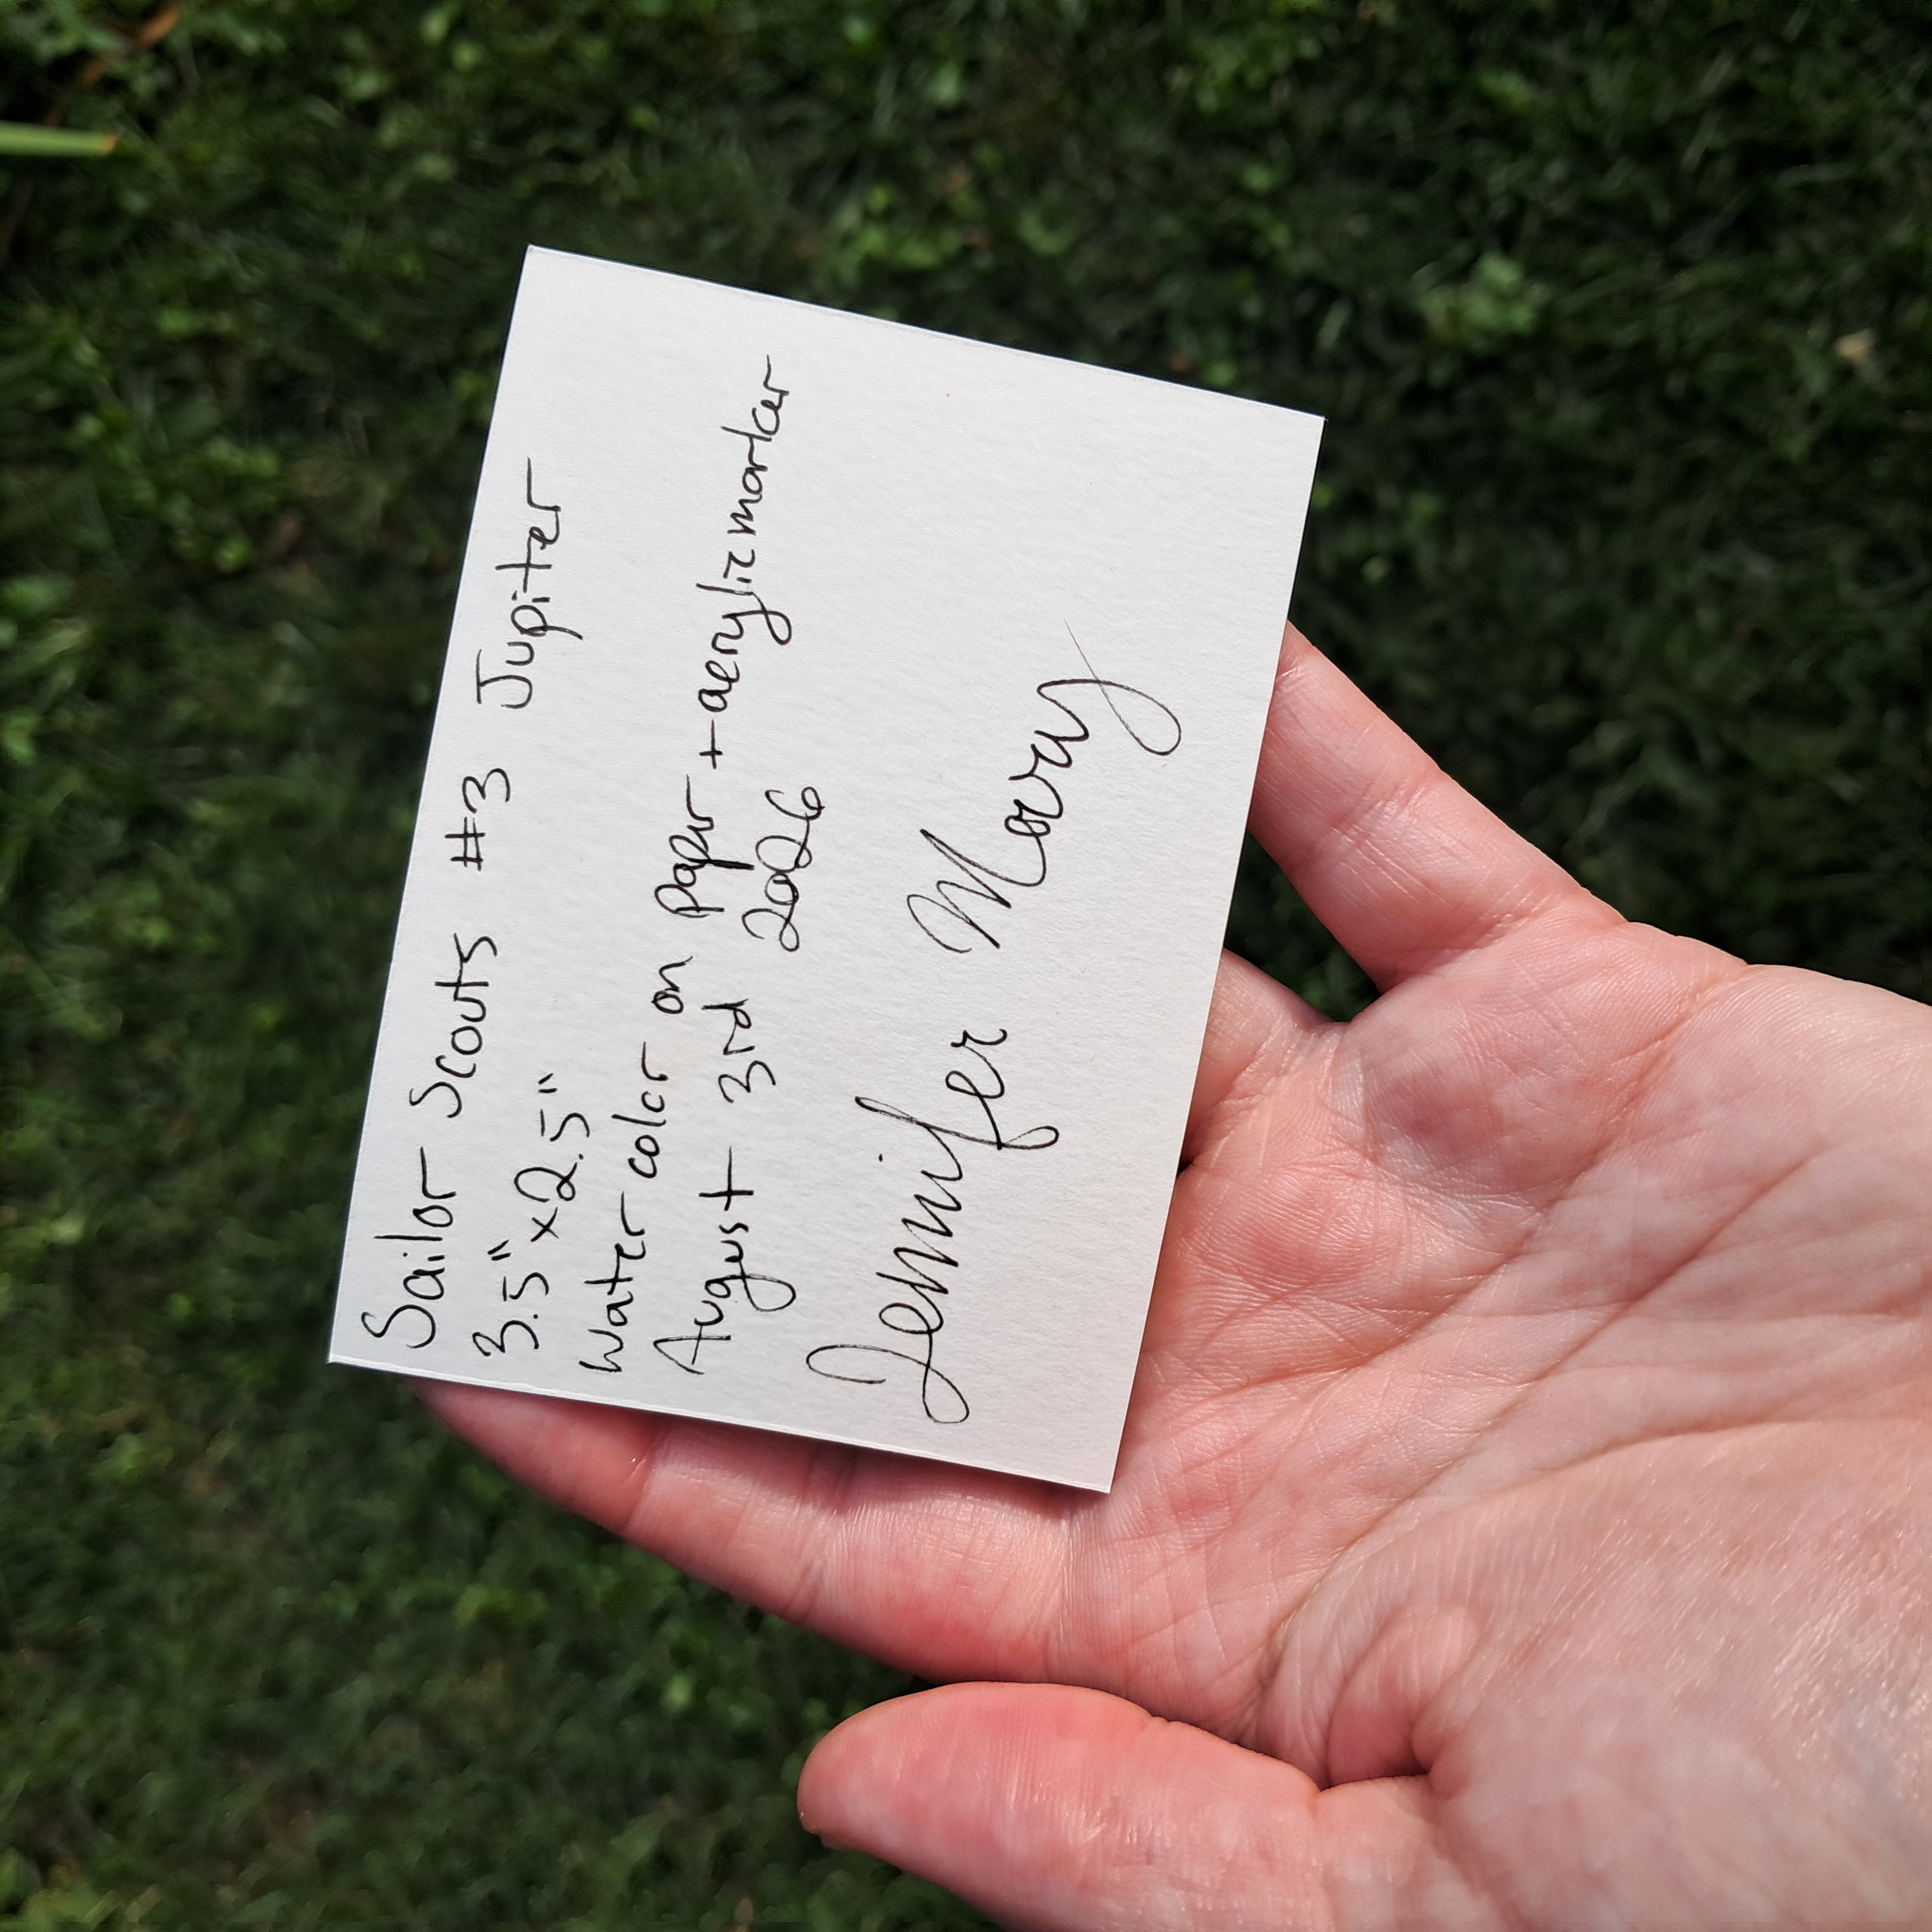 Sailor Scouts #3 Jupiter
3.5" x 2.5"
Water color on paper + acrylic marker
August 3rd 2026
Jennifer Mary